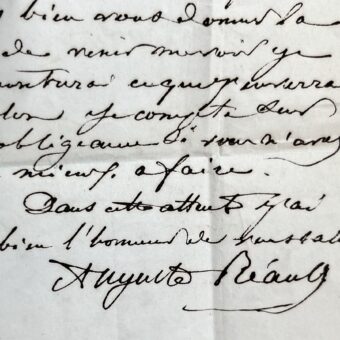 bien vous donner la
de venir me voir je
en que
lon je compte sur
obligeance si vous n'avez
mieux a faire.
Dans cette attente j'ai
bien l'honneur de
Auguste Réault